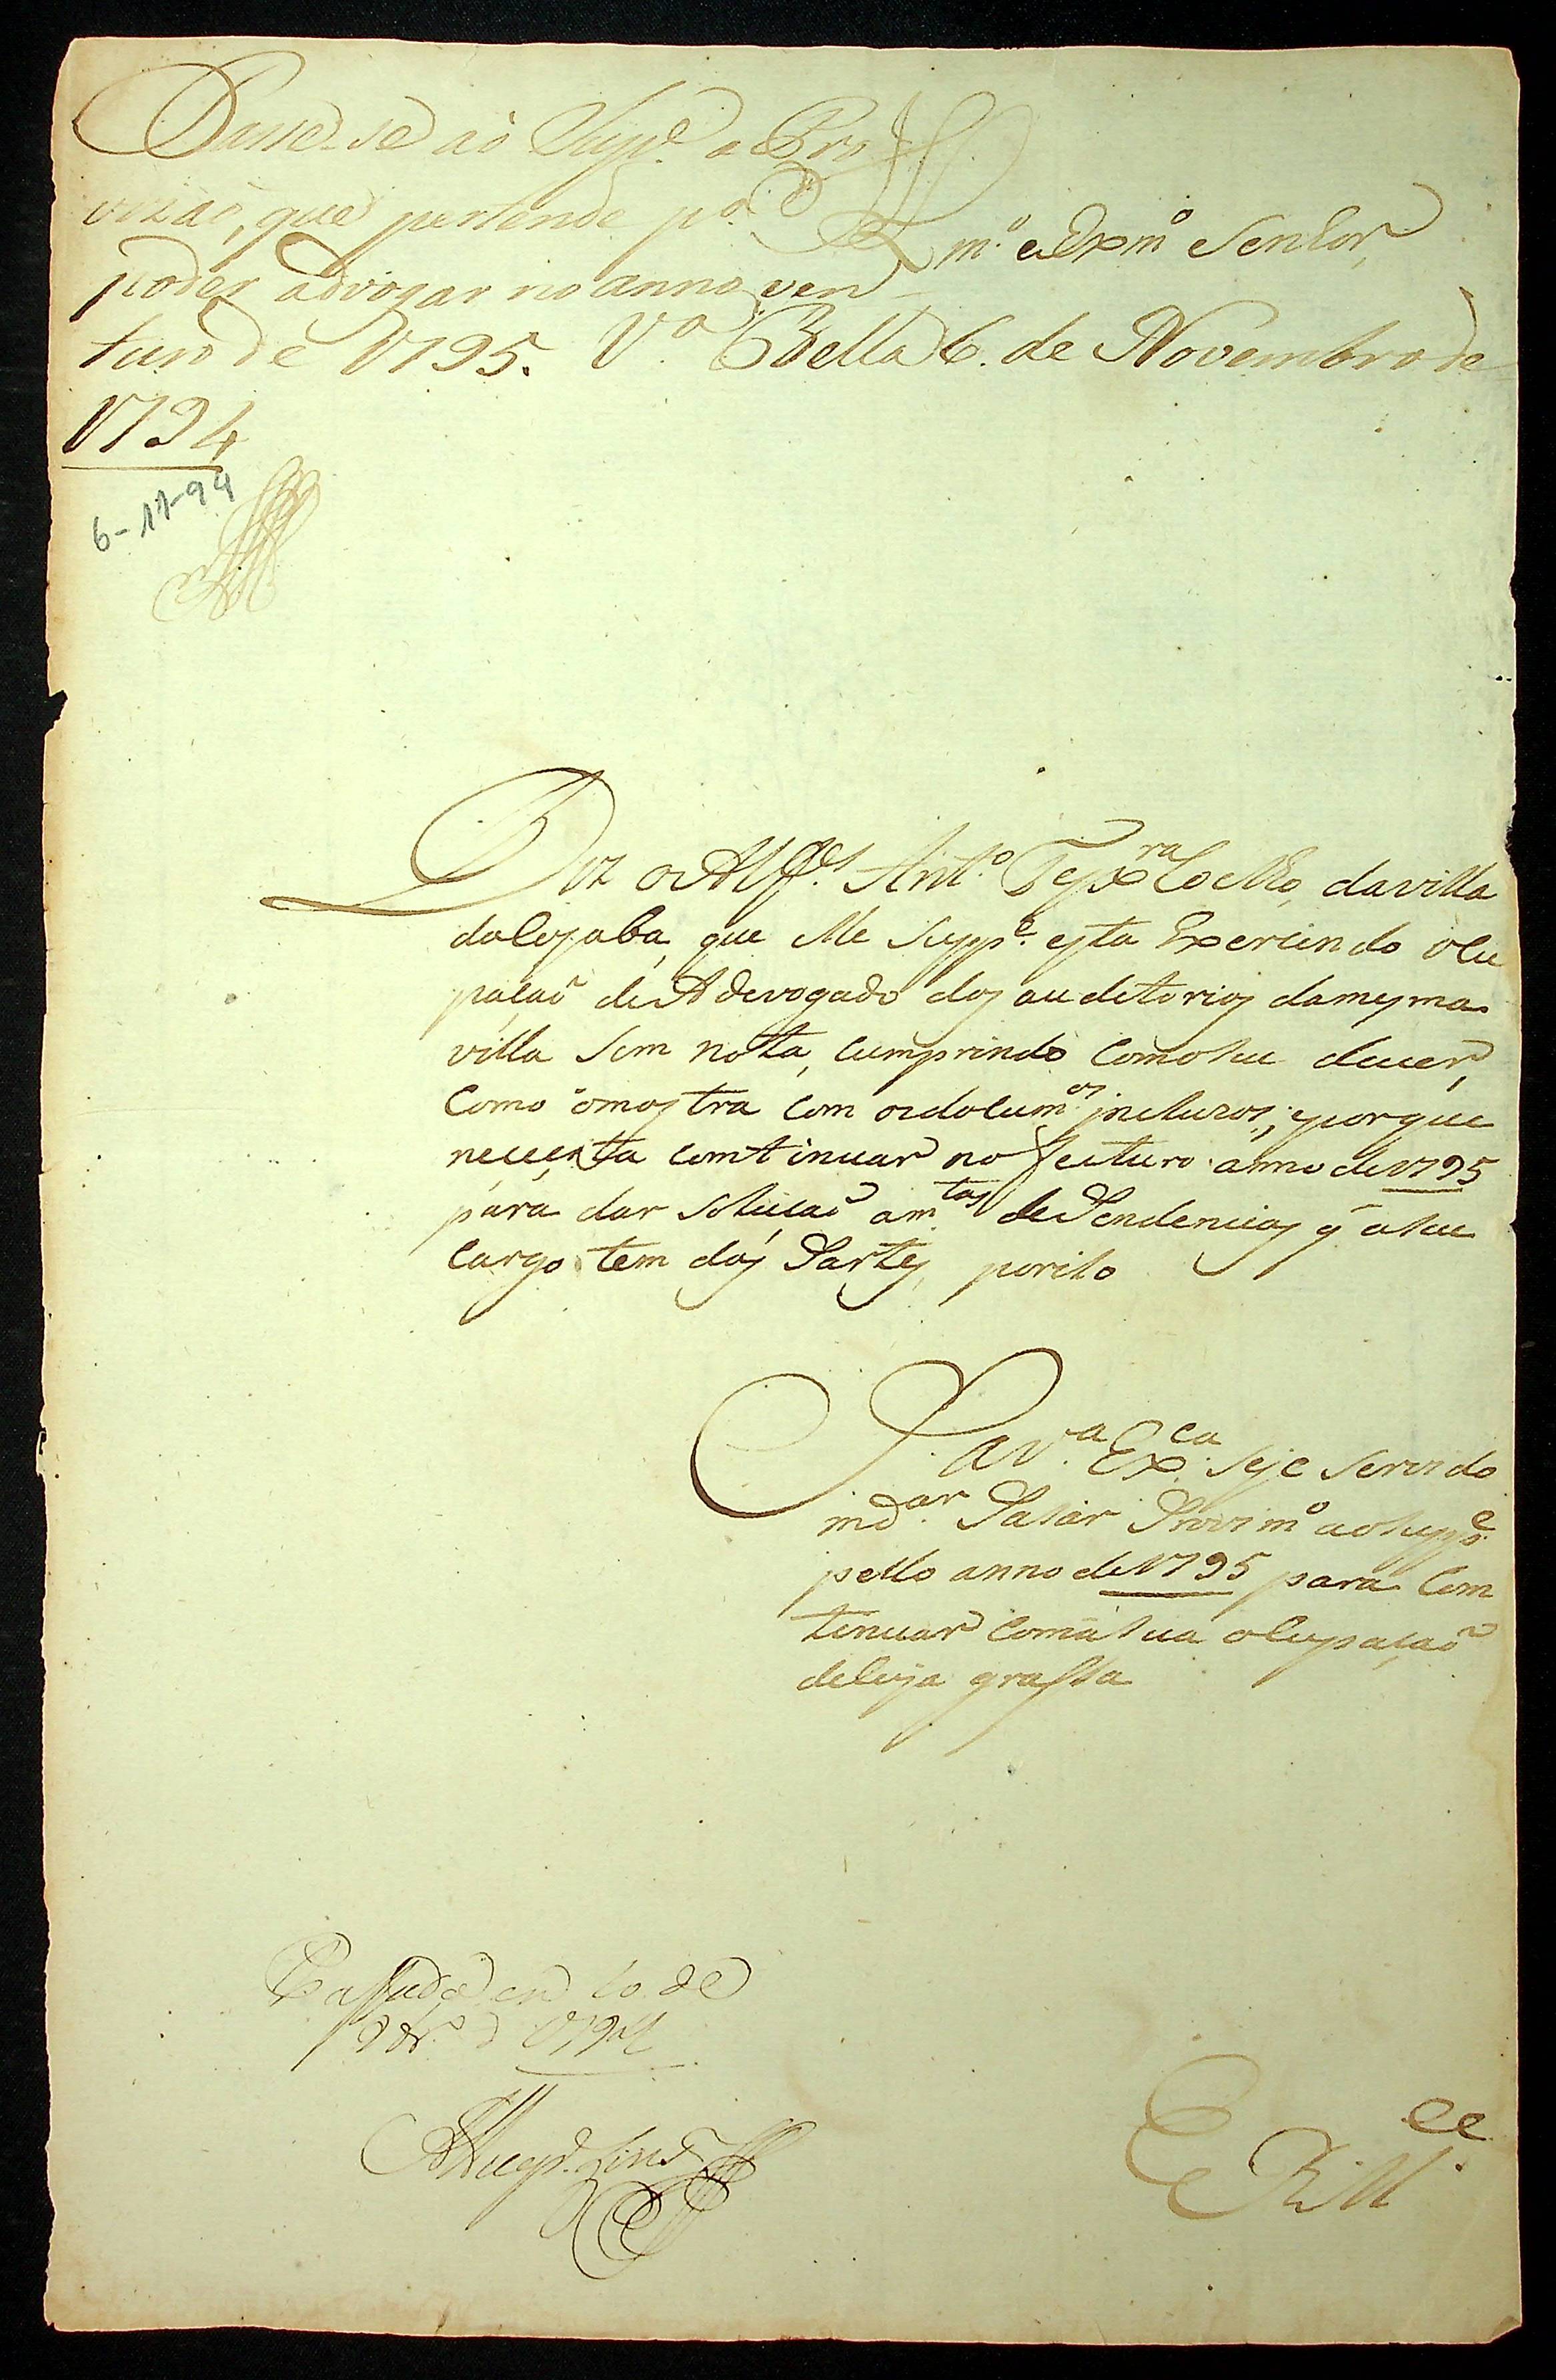 Passe-se aõ Supe. a Pro
vizaõ, que pertende pa.
poder advogar no anno ven
turo de 1795. Va. Bella 6. de Novembro de
1794
6-11-94
Illmo. e Exmo Senhor,
Diz o Alfes. Anto. Teyxra Coelho, da villa
do Cuyaba, que elle Suppe. esta Exercendo ocu
paçaõ de Adevogado dos auditorios da mesma
villa sem nota, cumprindo com o seu dever,
como o mostra com os docum.os incluzos, e porque
neceçita comtinuar no feuturo anno de 1795
para dar soluçaõ a m.tas dePendencias q̃ a seu
cargo tem das Partes, por iso
P. a V.a Ex.ca seje servido
md.ar Pasar Provimo ao suppe.
pello anno de 1795 para Com
tinuar com a sua ocupaçaõ
de cuja grassa
Passada em 10 de
9br.o d 1794
E R M.ce